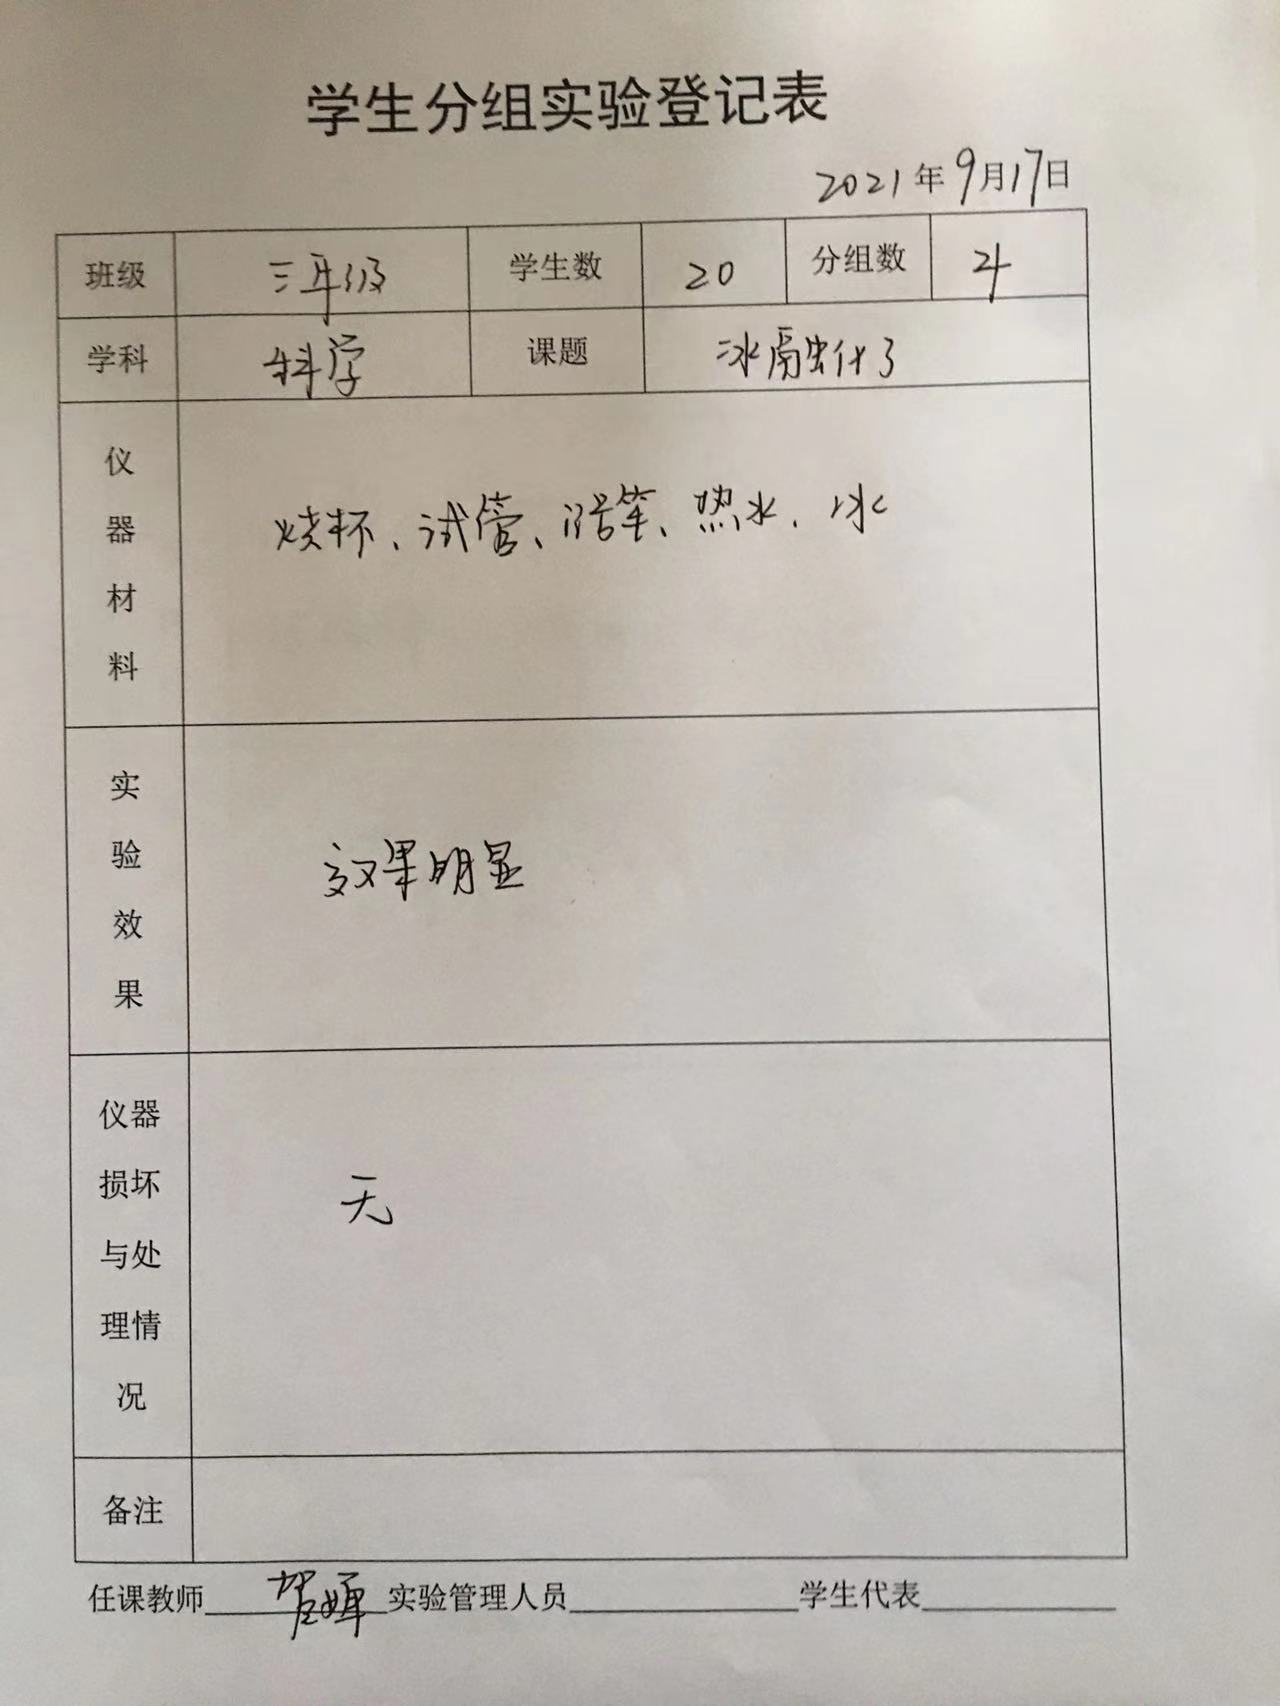 学生分组实验登记表
2021年9月17日
班级 三年级 学生数 20 分组数 4
学科 科学 课题 冰融化了
仪器材料 烧杯、试管、滴管、热水、冰
实验效果 效果明显
仪器损坏与处理情况 无
备注
任课教师 实验管理人员 学生代表